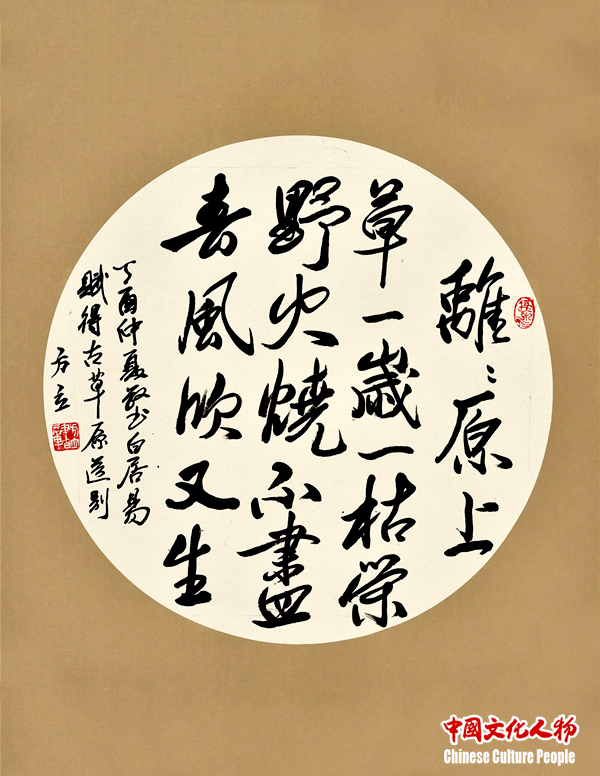 離〻原上
草一歲一枯榮
野火燒不盡
春風吹又生
丁酉仲夏敬书白居易
賦得古草原送别
方立
中国文化人物
Chinese Culture People